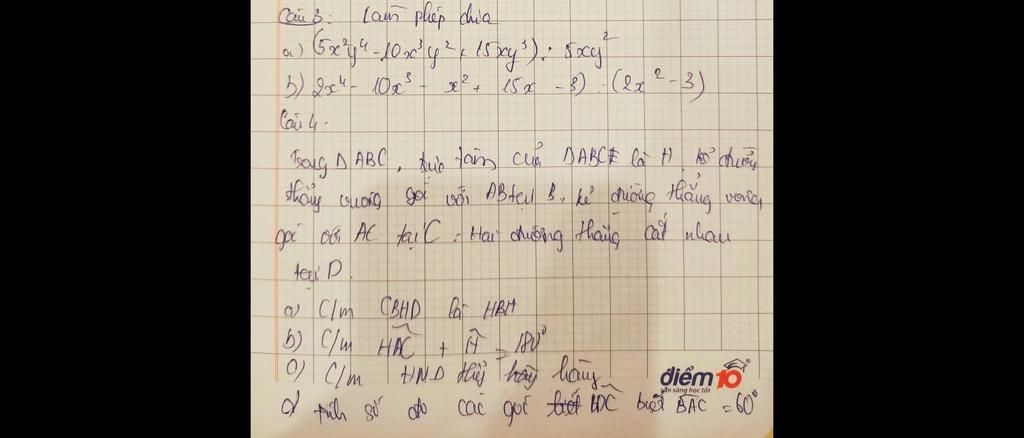 Câu 3: Làm phép chia
a) (5x²y⁴ - 10x³y² + 15xy³) : 5xy²
b) 2x⁴ - 10x³ - x² + 15x - 3) : (2x² - 3)
Câu 4:
Trong ΔABC, trực tâm của ΔABC là H kẻ đường
thẳng vuông góc với AB tại B, kẻ đường thẳng vuông
góc với AC tại C. Hai đường thẳng cắt nhau
tại D.
a) C/m CBHD là HBH
b) C/m HAC + H = 180°
c) C/m HND thẳng hàng
d) tính số đo các góc BDC biết BAC = 60°
điểm 10
sẵn sàng học tốt